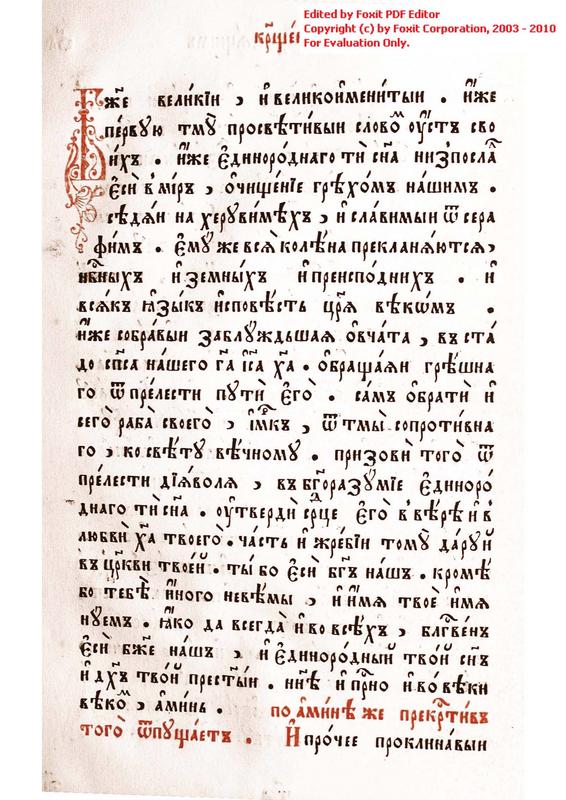 Edited by Foxit PDF Editor
Copyright (c) by Foxit Corporation, 2003 - 2010
For Evaluation Only.
Бж҃е вели́кїи , и҆ великои҆мени́тыи . и҆́же
пе́рвую тмꙋ̀ просвѣти́выи сло́воⷨ ѹ҆́стъ сво
и҆́хъ . и҆́же є҆диноро́днаго тѝ сн҃а низпосла̀
є҆сѝ в̾ ми́ръ , ѡ҆чище́нїе грѣхо́мъ на́шимъ .
сѣдѧ́и на херꙋви́мѣхъ , и҆ сла́вимыи ѿ сера
фи́мъ . є҆мꙋ́ же всѧ̀ колѣ́на прекланѧ́ютсѧ ,
нб҃ныхъ и҆ зе́мныхъ и҆ преиспо́днихъ . и҆
всѧ́къ ꙗ҆зы́къ и҆сповѣ́сть цр҃ѧ вѣкѡ́мъ .
и҆́же собра́выи заблꙋ́ждьшаѧ ѻ҆вча́та , въ ста́
до сп҃са на́шего гⷭ҇а і҆с҃а хрⷭ҇та̀ . ѡ҆браща́ѧи грѣ́шна
го ѿ пре́лести пꙋтѝ є҆го̀ . са́мъ ѡ҆братѝ и҆
сего̀ раба̀ своего̀ , и҆́мⷬ҇къ , ѿ тмы̀ сопроти́вна
го , ко свѣ́тꙋ вѣ́чномꙋ . призовѝ того̀ ѿ
пре́лести дїѧ́волѧ , въ бг҃оразꙋ́мїе є҆диноро́
днаго тѝ сн҃а . ѹ҆твердѝ се́рⷣце є҆го̀ в̾ вѣ́рѣ и҆ в̾
любвѝ хⷭ҇а̀ твоего̀ . ча́сть и҆ жре́бїи томꙋ̀ да́рꙋй
въ цр҃кви твое́й . ты́ бо є҆сѝ бг҃ъ на́шъ . кромѣ́
бо тебѐ и҆́ного невѣ́мы , и҆ и҆́мѧ твоѐ и҆мѧ
нꙋ́емъ . ꙗ҆́ко да всегда̀ и҆ во всѣ́хъ , блгⷭ҇ве́нъ
є҆сѝ бж҃е на́шъ , и҆ є҆диноро́дный тво́й сн҃ъ
и҆ дх҃ъ тво́й прест҃ы́и . нн҃ѣ и҆ прⷭ҇но и҆ во вѣ́ки
вѣко́ⷨ , а҆ми́нь . по а҆ми́нѣ же прекрⷭ҇ти́въ
того̀ ѿпꙋща́етъ . И҆ про́чее проклина́выи